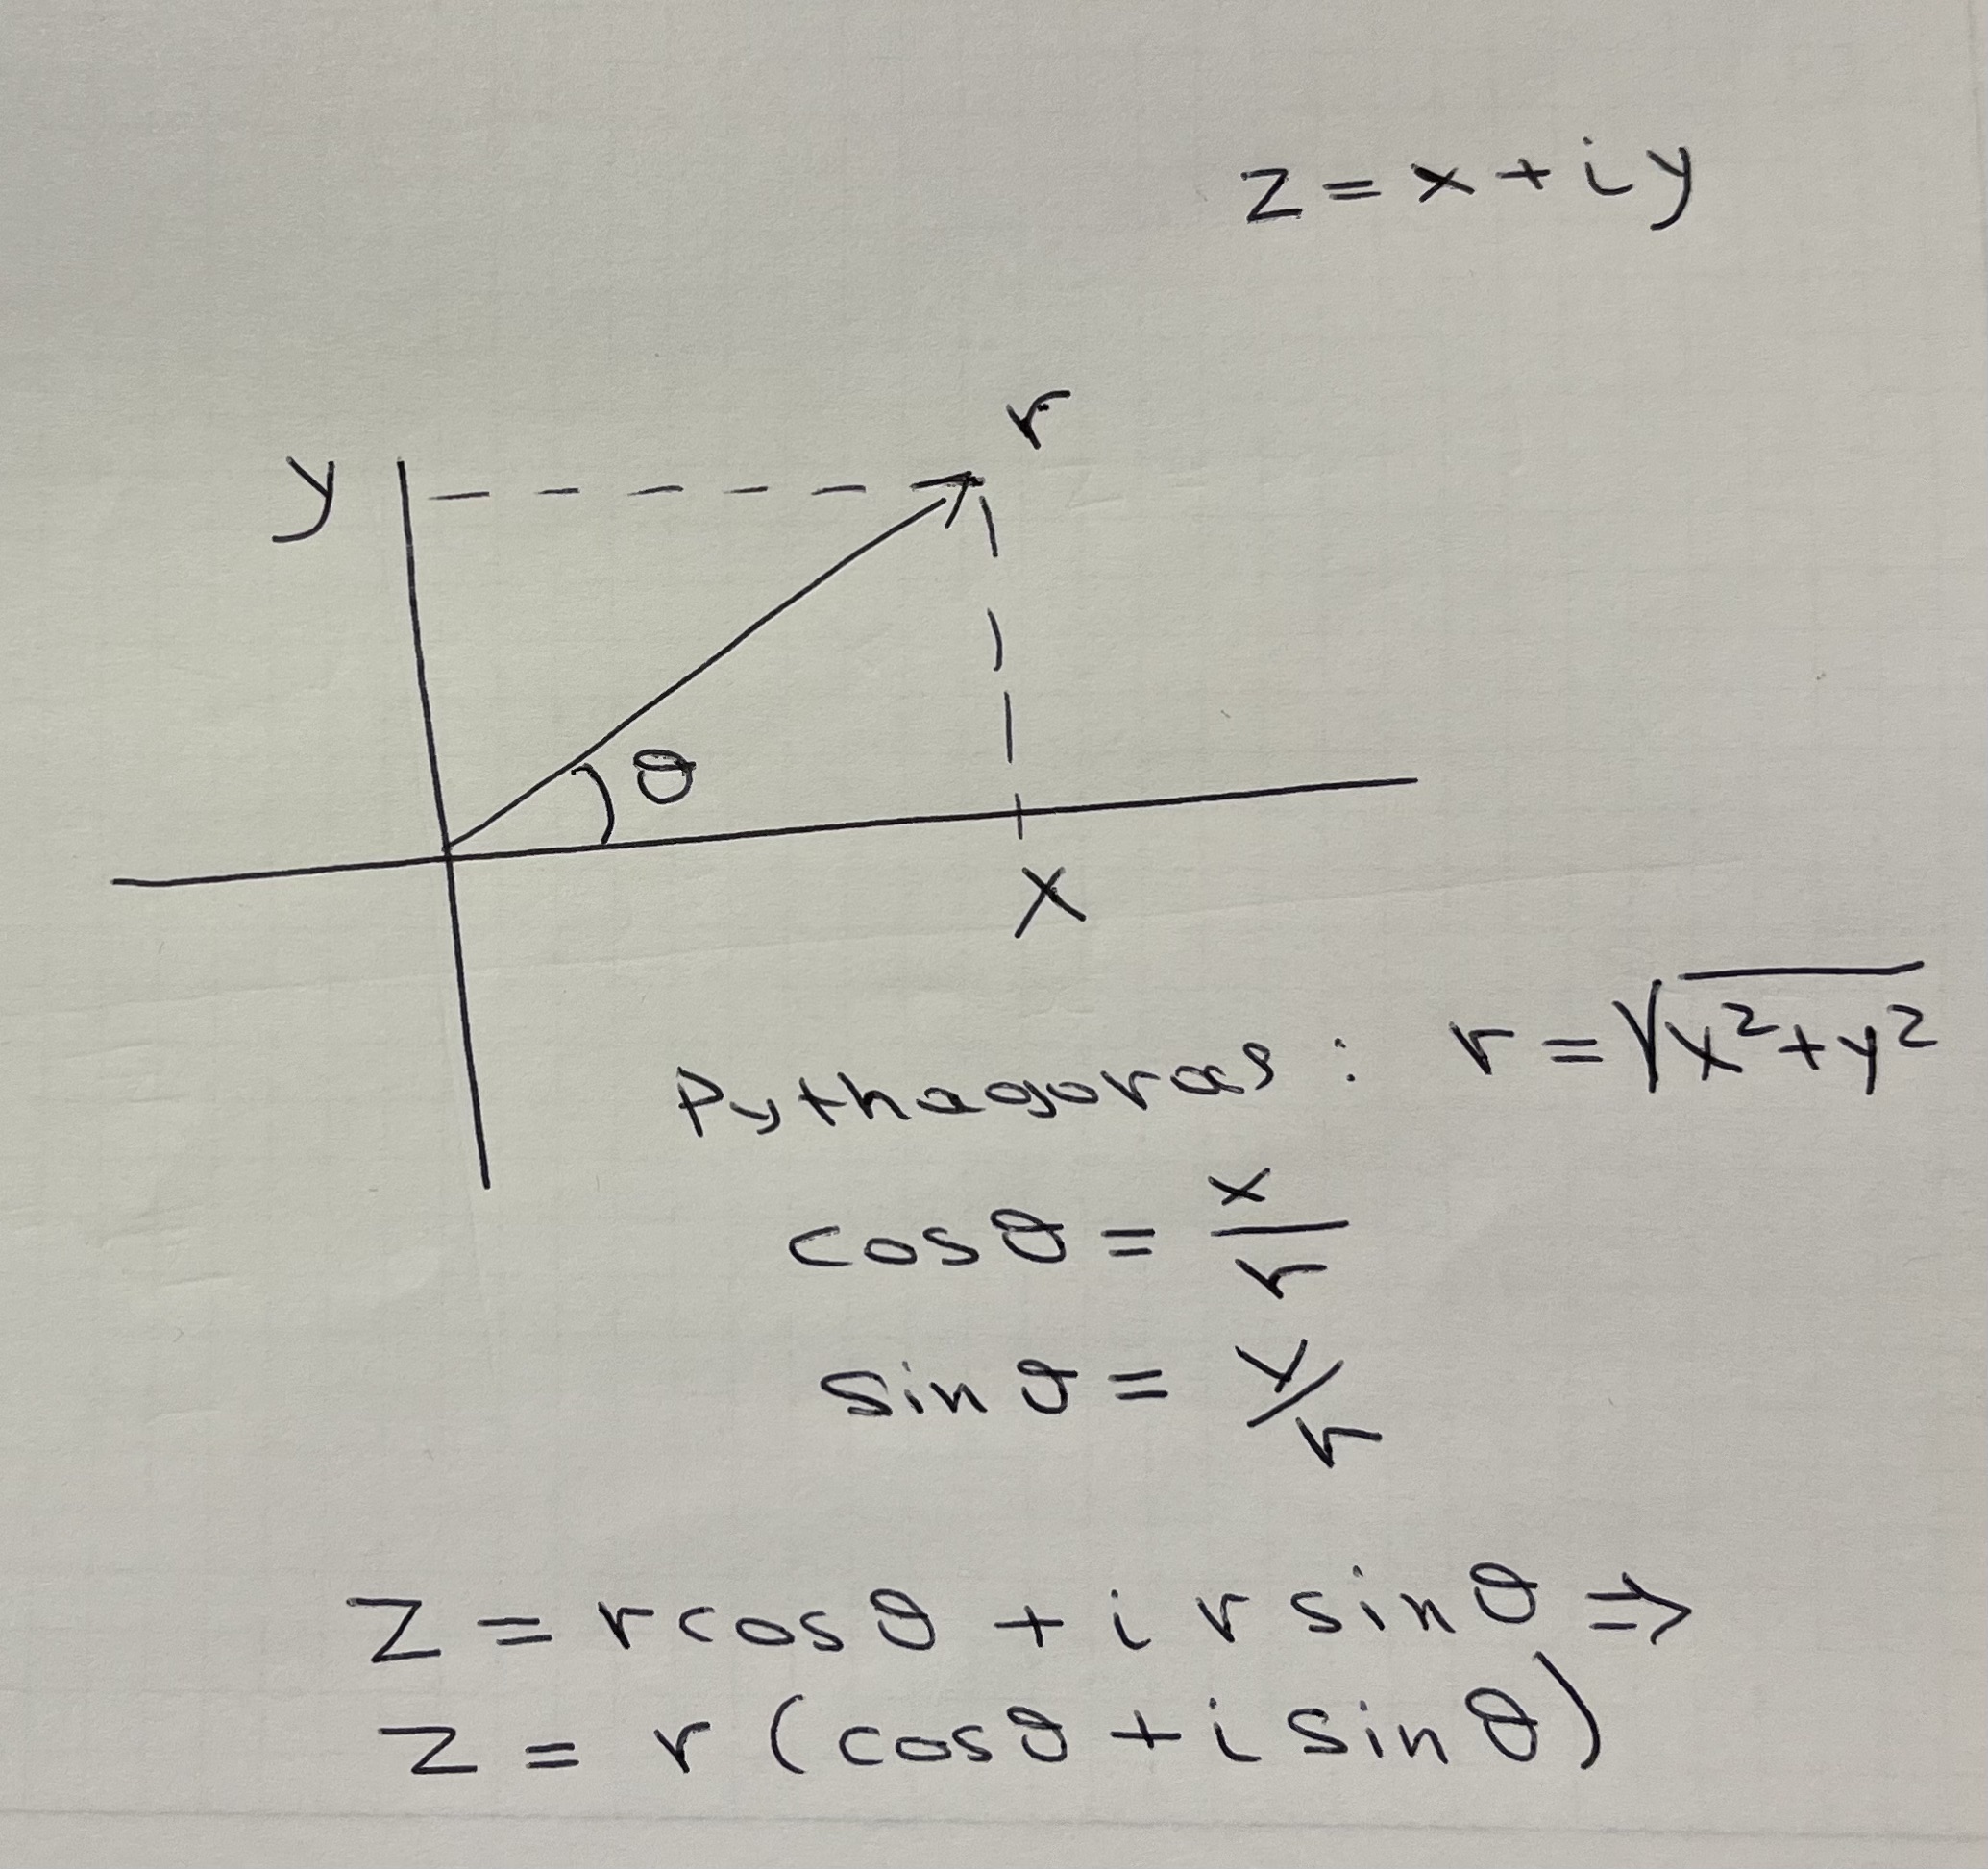 z = x + i y
r
y
θ
x
Pythagoras : r = √x² + y²
cosθ = x/r
sinθ = y/r
z = r cosθ + i r sinθ ⇒
z = r (cosθ + i sinθ)